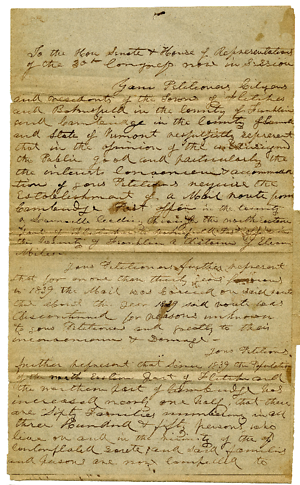 To the Hon Senate & House of Representatives
of the Congress now in Session
Your Petitioners Citizens
and residents of the Towns of Fletcher
and Bakersfield in the County of Franklin
and Cambridge in the County of
and State of Vermont respectfully represent
that in the opinion of the undersigned
the Public good and particularly the
the interest convenience & accommoda
tion of your Petitioners require the
Establishment of a Mail route from
Cambridge Post Office in the County
of leading the
of Fletcher
in the County of Franklin a distance of Eleven
Miles
Your Petitioners further represent
that for more than thirty years
in 1839 the Mail was carried on said route
the year 1839 said route was
discontinued for reasons unknown
to your Petitioners and greatly to their
inconvenience & Damage
Your Petitioners
further represent that since 1839 the Population
of the northeastern Part of Fletcher and
the northern part of Cambridge has
increased nearly one half, that there
are Sixty Families numbering in all
three Hundred & fifty persons who
live on and in the vicinity of the
contemplated route and said families
and persons are now compelled to